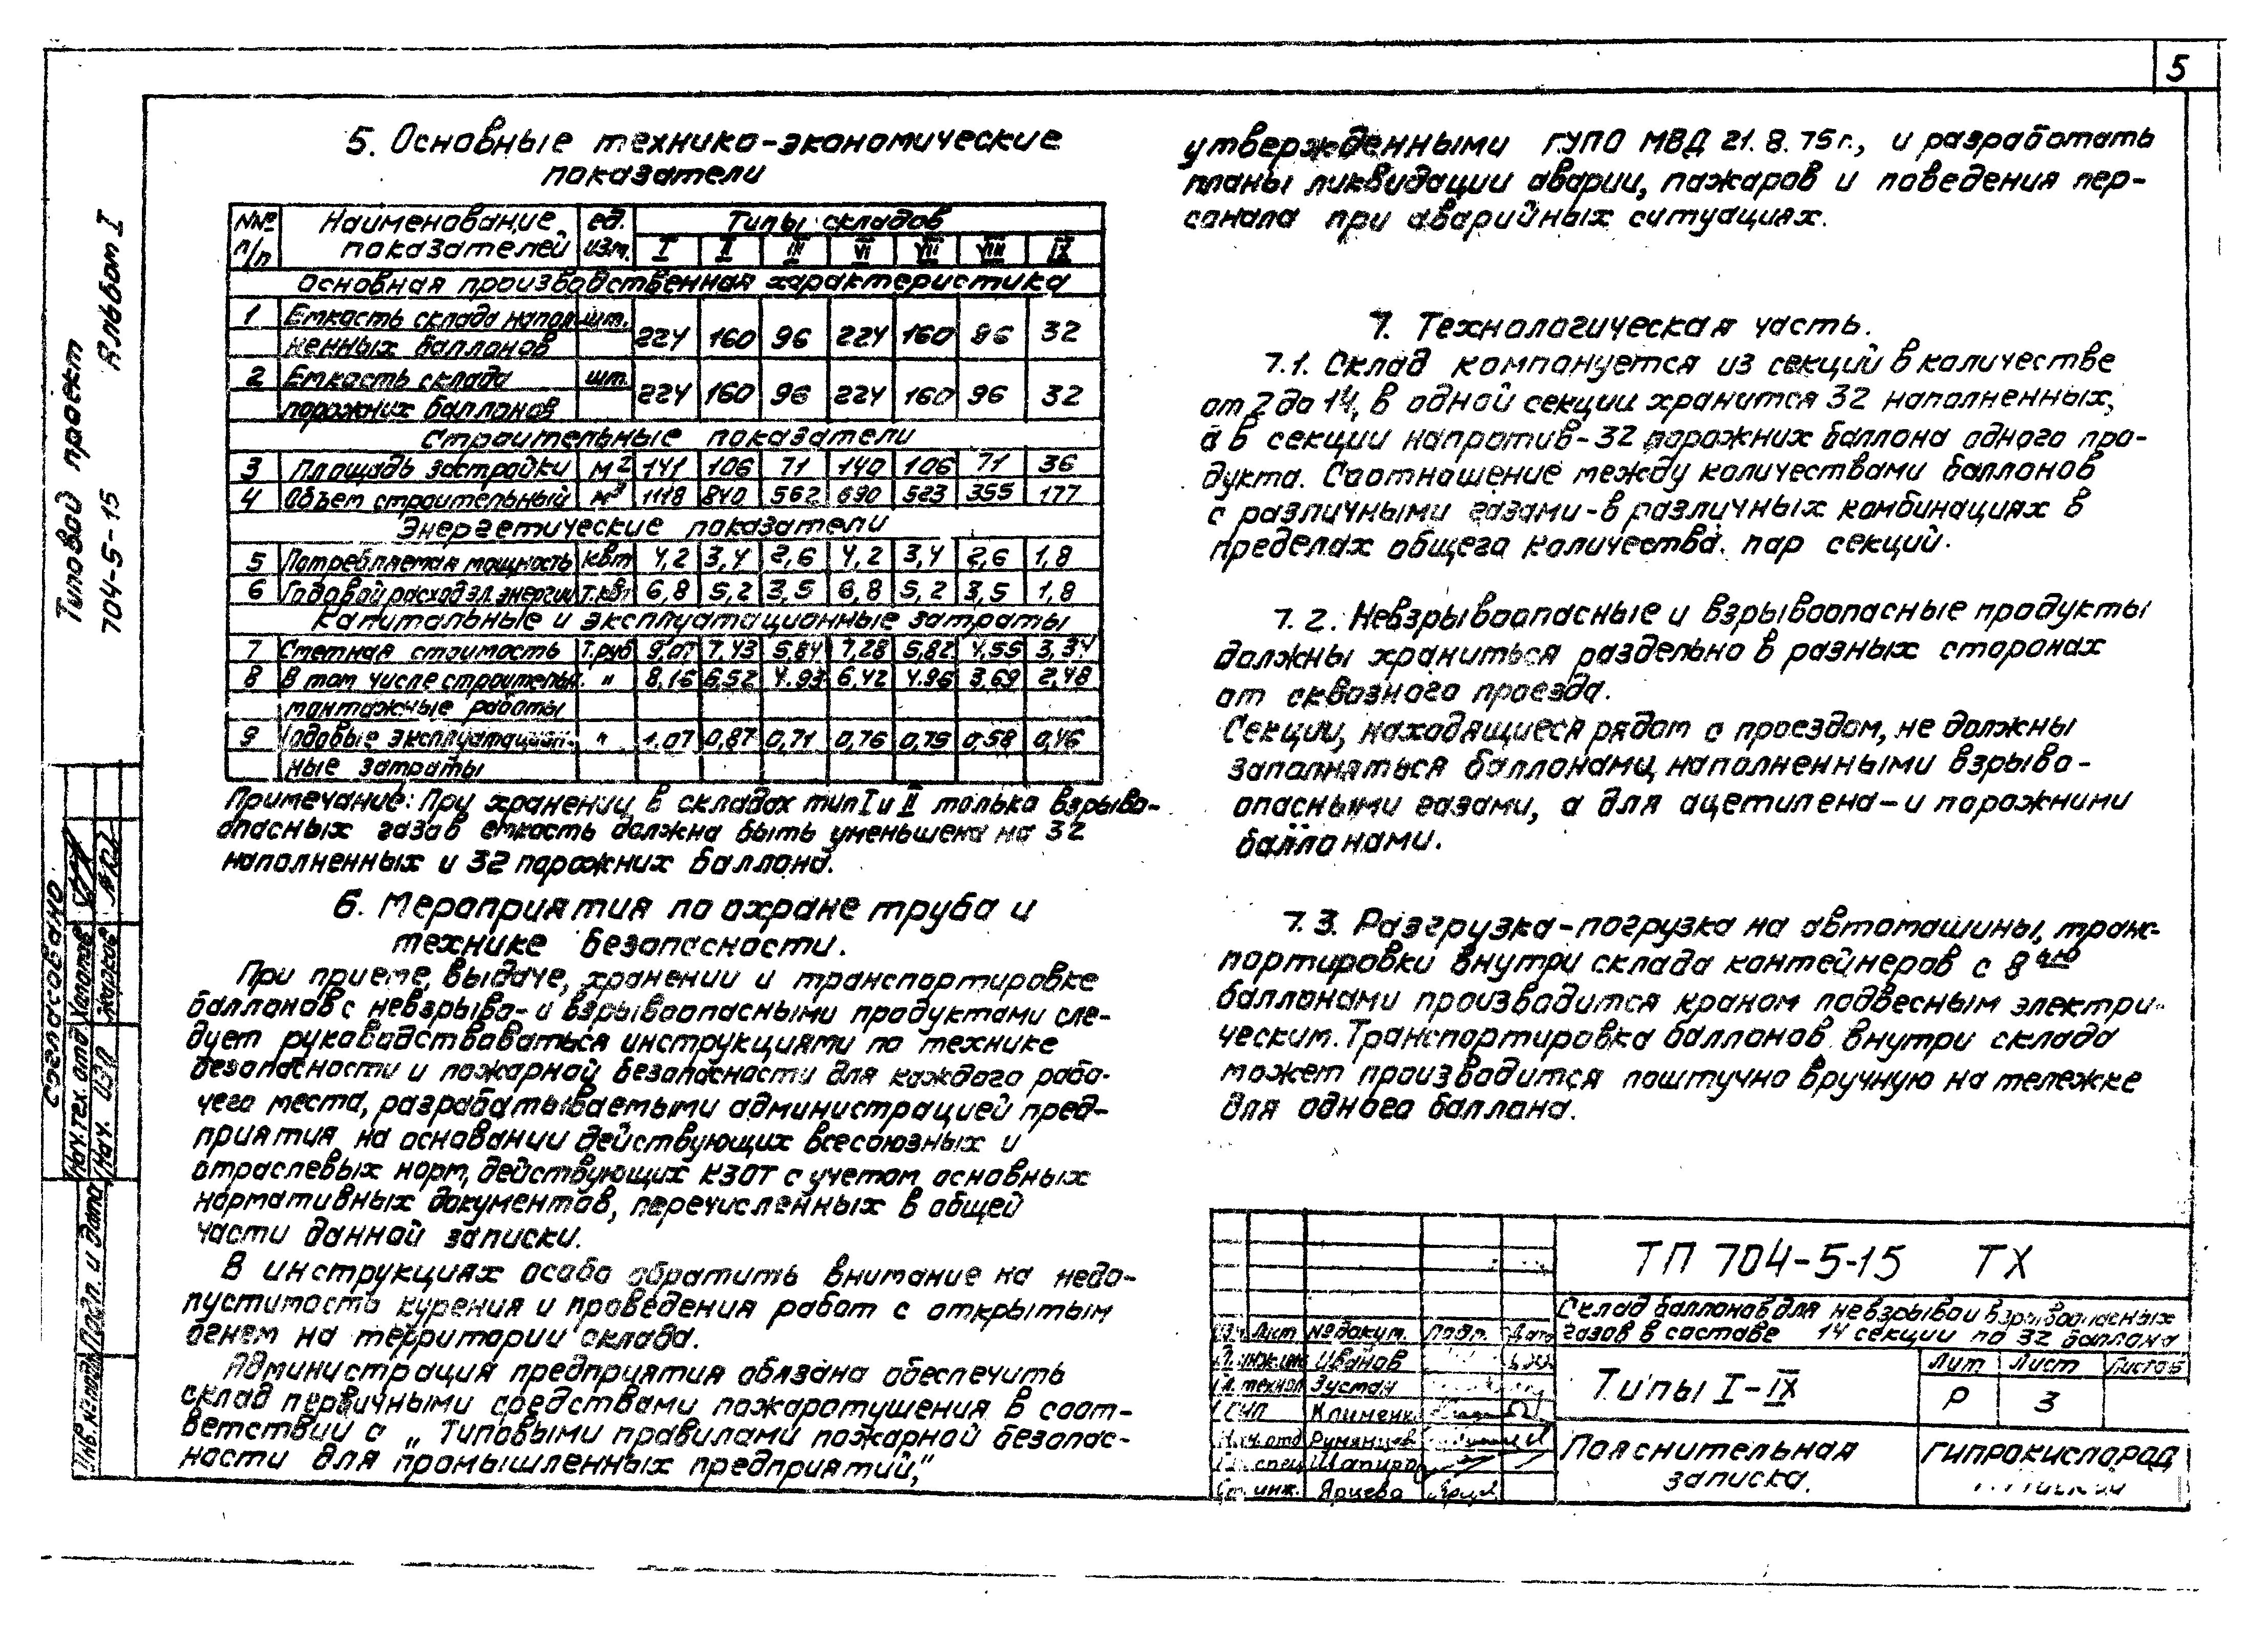 5
Типовой проект
704-5-15 Альбом I
5. Основные технико-экономические
показатели
№№ п/п Наименование показателей ед. изм. Типы складов
I II III VI VII VIII IX
Основная производственная характеристика
1 Емкость склада напол- шт. 224 160 96 224 160 96 32
ненных баллонов
2 Емкость склада шт. 224 160 96 224 160 96 32
порожних баллонов
Строительные показатели
3 Площадь застройки м2 141 106 71 140 106 71 36
4 Объем строительный м3 1118 840 562 690 523 355 177
Энергетические показатели
5 Потребляемая мощность квт 4,2 3,4 2,6 4,2 3,4 2,6 1,8
6 Годовой расход эл. энергии т.квт 6,8 5,2 3,5 6,8 5,2 3,5 1,8
Капитальные и эксплуатационные затраты
7 Сметная стоимость т.руб 9,07 7,43 5,84 7,28 5,82 4,55 3,34
8 В том числе строительн. " 8,16 6,52 4.93 6,42 4.96 3,69 2,48
монтажные работы
9 Годовые эксплуатацион- " 1,07 0,87 0,71 0,76 0,75 0,58 0,46
ные затраты
Примечание: При хранении в складах тип I и II только взрыво-
опасных газов емкость должна быть уменьшена на 32
наполненных и 32 порожних баллона.
6. Мероприятия по охране труда и
технике безопасности.
При приеме, выдаче, хранении и транспортировке
баллонов с невзрыво- и взрывоопасными продуктами сле-
дует руководствоваться инструкциями по технике
безопасности и пожарной безопасности для каждого рабо-
чего места, разрабатываемыми администрацией пред-
приятия на основании действующих всесоюзных и
отраслевых норм, действующих КЗОТ с учетом основных
нормативных документов, перечисленных в общей
части данной записки.
В инструкциях особо обратить внимание на недо-
пустимость курения и проведения работ с открытым
огнем на территории склада.
Администрация предприятия обязана обеспечить
склад первичными средствами пожаротушения в соот-
ветствии с „Типовыми правилами пожарной безопас-
ности для промышленных предприятий,"
утвержденными ГУПО МВД 21.8.75г., и разработать
планы ликвидации аварии, пожаров и поведения пер-
сонала при аварийных ситуациях.
7. Технологическая часть.
7.1. Склад компонуется из секций в количестве
от 2 до 14, в одной секции хранится 32 наполненных,
а в секции напротив-32 порожних баллона одного про-
дукта. Соотношение между количествами баллонов
с различными газами-в различных комбинациях в
пределах общего количества пар секций.
7.2. Невзрывоопасные и взрывоопасные продукты
должны храниться раздельно в разных сторонах
от сквозного проезда.
Секции, находящиеся рядом с проездом, не должны
заполняться баллонами, наполненными взрыво-
опасными газами, а для ацетилена-и порожними
баллонами.
7.3. Разгрузка-погрузка на автомашины, транс-
портировки внутри склада контейнеров с 8ью
баллонами производится краном подвесным электри-
ческим. Транспортировка баллонов внутри склада
может производится поштучно вручную на тележке
для одного баллона.
Согласовано:
Нач.тех.отд Холопов
Нач. ОЭП Жарков
Подп. и дата
Инв.№ подл.
ТП 704-5-15 ТХ
Склад баллонов для невзрыво и взрывоопасных
газов в составе 14 секции по 32 баллона
Изм Лист №докум. Подп. Дата
Иванов
Гл. технол Зустан
ГИП Клименко
Нач. отд Румянцев
Гл. спец Шапиро
Ст. инж. Ярцева
Типы I-IX
Лит Лист Листов
Р 3
Пояснительная
записка.
ГИПРОКИСЛОРОД